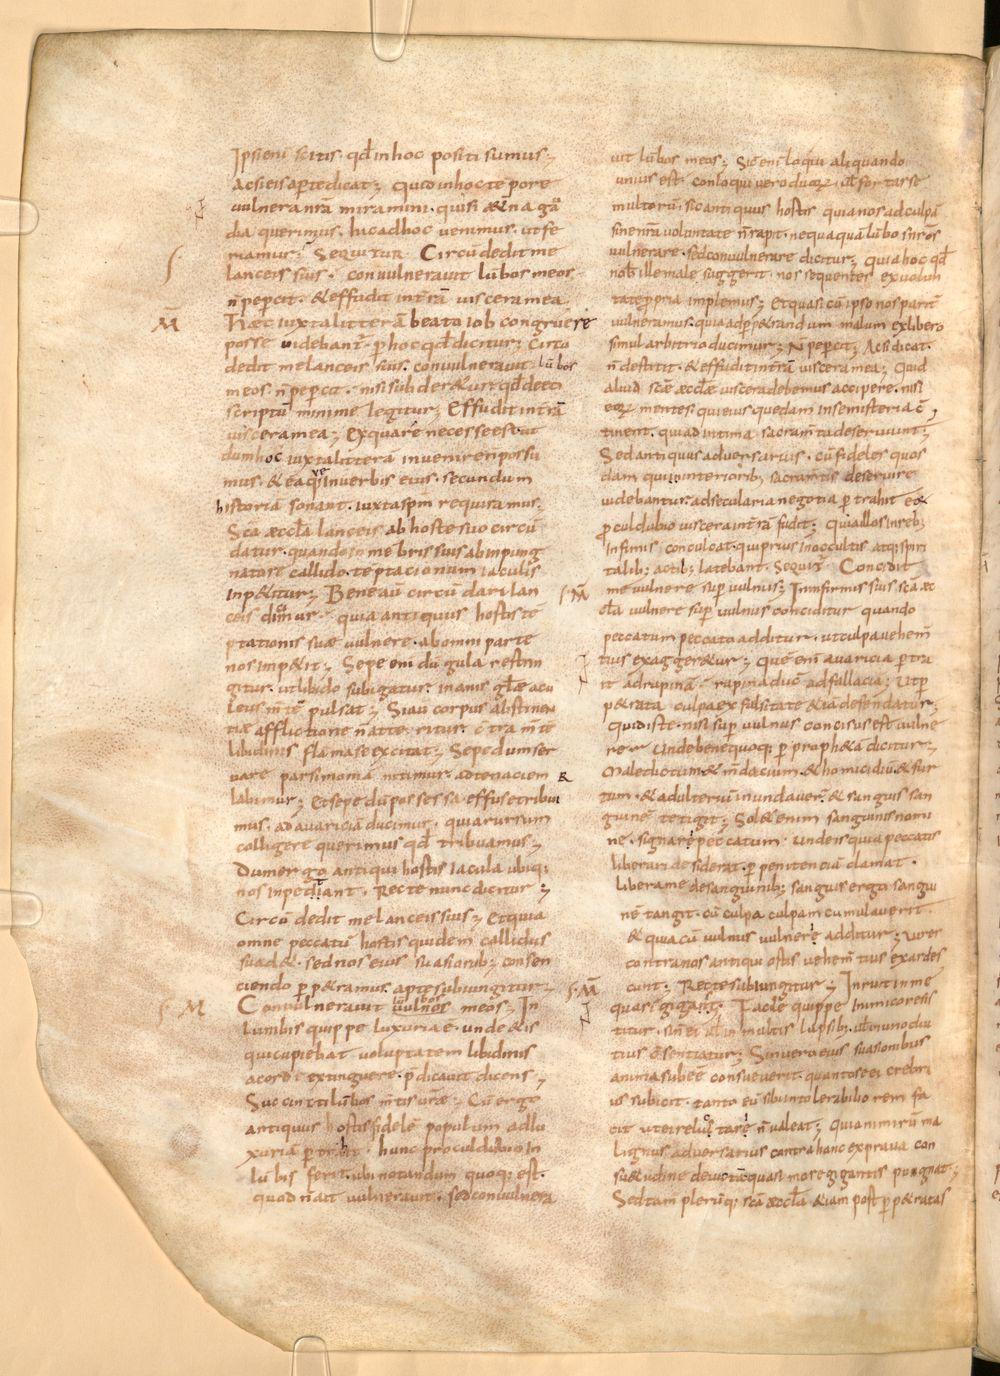 Ipsieni scitis· qđ in hoc positi sumus·,
Acsieis aptedicat·, Quid in hoc tēpore
vulnera nr̄a miramini· quisi æt̄na gau
dia querimus· hic adhoc venimus· ut fe
riamur·, Sequitur Circū dedit me
lanceis suis· convulneravit lūbos meos·
n̄ pepcit· & effudit int̄rā viscera mea
Hæc iuxta litterā beato iob congruere
posse n̄ videbant̄· p hoc qđ dicitur·, Circū
dedit me lanceis suis· convulneravit lūbos
meos· n̄ pepcit· nisi sub der&ur· qđ de eo
scriptū minime legitur·, Effudit in t̄rā
viscera mea·, Ex qua re necesse est ut
dum hoc iuxta litterā invenire n̄ possu
mus· & ea quę in verbis eius· secundum
historiā sonant· iuxta sp̄m requiramus·
Sc̄a æccl̄a lanceis ab hoste suo circū
datur· quando in mēbris suis ab inpung
natore callido· tēptacionum iaculis
inp&itur·, Bene aū circū dari lan
ceis dicimur· quia antiquus hostis tē
ptationis suæ vulnere· ab omni parte
nos imp&it·, Sepe eni dū gula restrin
gitur· ut libido subigatur· inanis gl̄æ acu
leus m̄tē pulsat·, Si aū corpus abstinen
tiæ afflictione n̄ atteritur· c̄tra m̄tē
libidinis flāma se excitat·, Sepe dum ser
vare parsimoniā nitimur· ad tenaciem
labimur·, Et sepe dū possessa effuse tribui
mus· ad avariciā ducimur· quia rursum
colligere querimus qđ tribuamus·,
Dum ergo antiqui hostis iacula ubiq;
nos inpediant· Recte nunc dicitur·,
Circū dedit me lanceis suis·, Et quia
omne peccatū hostis quidem callidus
suad&· sed nos eius suasionib; consen
ciendo pp&ramus· apte subiungitur·,
Convulneravit lumbos meos·, In
lumbis quippe luxuriæ· unde & is
qui cupiebat voluptatem libidinis
a corde extinguere· p̄dicavit dicens·,
Succincti lūbos m̄tis vr̄æ·, Cū ergo
antiquus hostis fidelē populum ad lu
xuriā ptrahit· hunc proculdubio in
lūbis ferit· ubi notandum quoq; est·
quod n̄ ait vulneravit· sed convulnera
vit lūbos meos·, Sic eni loqui aliquando
unius est· conloqui vero duoꝝ· vł fortasse
multorū· sic antiquus hostis quia nos ad culpā
sine nr̄a voluntate n̄ rapit· nequaquā lūbos nr̄os
vulnerare· sed convulnerare dicitur· quia hoc qđ
nob̄ ille male suggerit· nos sequentes ex volun
tate ppria implemus·, Et quasi cū ipso nos parit̄
vulneramus· quia ad pp&randum malum ex libero
simul arbitrio ducimur·, N̄ pepcit·, Acsi dicat·
n̄ destitit· & effudit in t̄rā viscera mea·, Quid
aliud sc̄æ æccl̄æ viscera debemus accipere· nisi
eoꝝ mentes· qui eius quedam in se misteria c̄
tinent· qui ad intima sacram̄ta deserviunt·,
Sed antiquus adversarius· cū fideles quos
dam qui in interiorib; sacram̄tis deservire
videbantur· ad secularia negotia p trahit
proculdubio viscera in t̄rā fudit·, Quia illos in reb;
infimis conculcat· qui prius in occultis atq; spiri
talib; actib; latebant· Sequit̄· Concidit
me vulnere sup vulnus·, In infirmis suis sc̄a æc
cl̄a vulnere sup vulnus conciditur quando
peccatum peccato additur· ut culpa vehem̄
tius exagger&ur·, Quē em̄ avaricia ptra
it ad rapinā· rapina ducit ad fallaciā·, Ut p
p&rata culpa ex falsitate & iā defendatur·,
quid iste· nisi sup vulnus concisus est vulne
re·, Unde bene quoq; p proph&ā dicitur·,
Maledictum & m̄dacium· & homicidiū· & fur
tum· & adulteriū inundaver̄· & sanguis san
guinē tetigit·, Sol& enim sanguinis nomi
ne· signari peccatum· unde is qui a peccatis
liberari desiderat· p penitenciā clamat·
libera me de sanguinib;· sanguis ergo sangui
nē tangit· cū culpa culpam cumulaverit·
& quia cū vulnus vulneri additur·, vires
contra nos antiqui ostis vehem̄tius exardes
cunt·, Recte subiungitur·, Inruit in me
quasi gigans·, Facile quippe inimico resis
titur· si n̄ ei vł in multis lapsib;· vł in uno diu
tius c̄sentiatur·, Sin vero eius suasionibus
anima subeē consueverit· quanto se ei crebri
us subicit· tanto eū sibi intolerabiliorem fa
cit ut ei reluctare n̄ valeat·, quia nimirū ma
lignus adversarius contra hanc ex prava con
su&udine devictā quasi more gigantis pugnat·,
Sed tam̄ plerūq; sc̄a æccl̄a &iam post pp&ratas